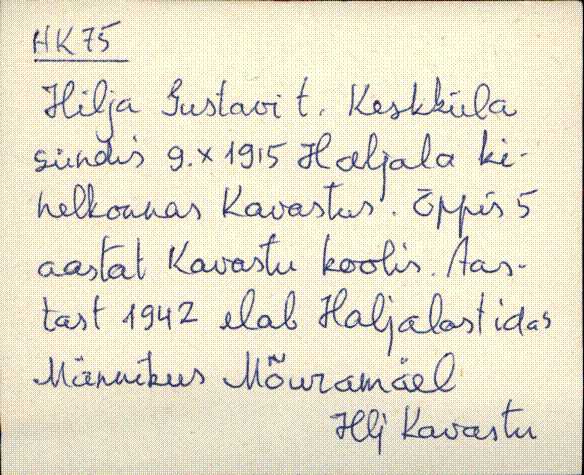 HK 75
Hilja Gustavi t. Keskküla
sündis 9.x 1915 Haljala ki-
helkonnas Kavastus. Õppis 5
aastat Kavastu koolis. Aas-
tast 1942 elab Haljalast idas
Männikus Mõuramäel
Hlj Kavastu